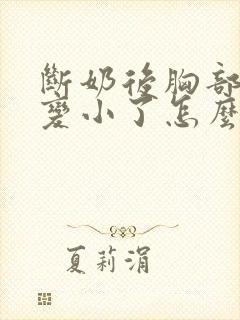 斷奶後胸部
變小了怎麼
夏莉涓